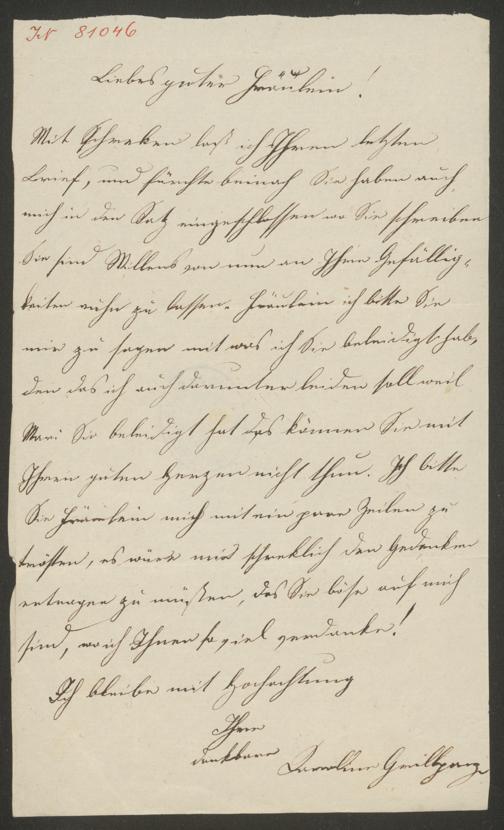 IN 81046
Liebes gutes Fräulein!
Mit Schreken laß ich Ihren letzten
Brief, und fürchte beinah Sie haben auch
mich in den Satz eingeschlossen wo Sie schreiben
Sie sind Willens von nun an Ihre Gefällig-
keiten ruhn zu lassen. Fräulein ich bitte Sie
mir zu sagen mit was ich Sie beleidigt hab,
den das ich auch darunter leiden soll weil
Mari Sie beleidigt hat das können Sie mit
Ihren guten Herzen nicht thun. Ich bitte
Sie Fräulein mich mit ein paar Zeilen zu
trösten, es wäre mir schreklich den Gedanken
ertragen zu müßen, das Sie böse auf mich
sind, wo ich Ihnen so viel verdanke!
Ich bleibe mit Hochachtung
Ihre
dankbare Karoline Grillparze